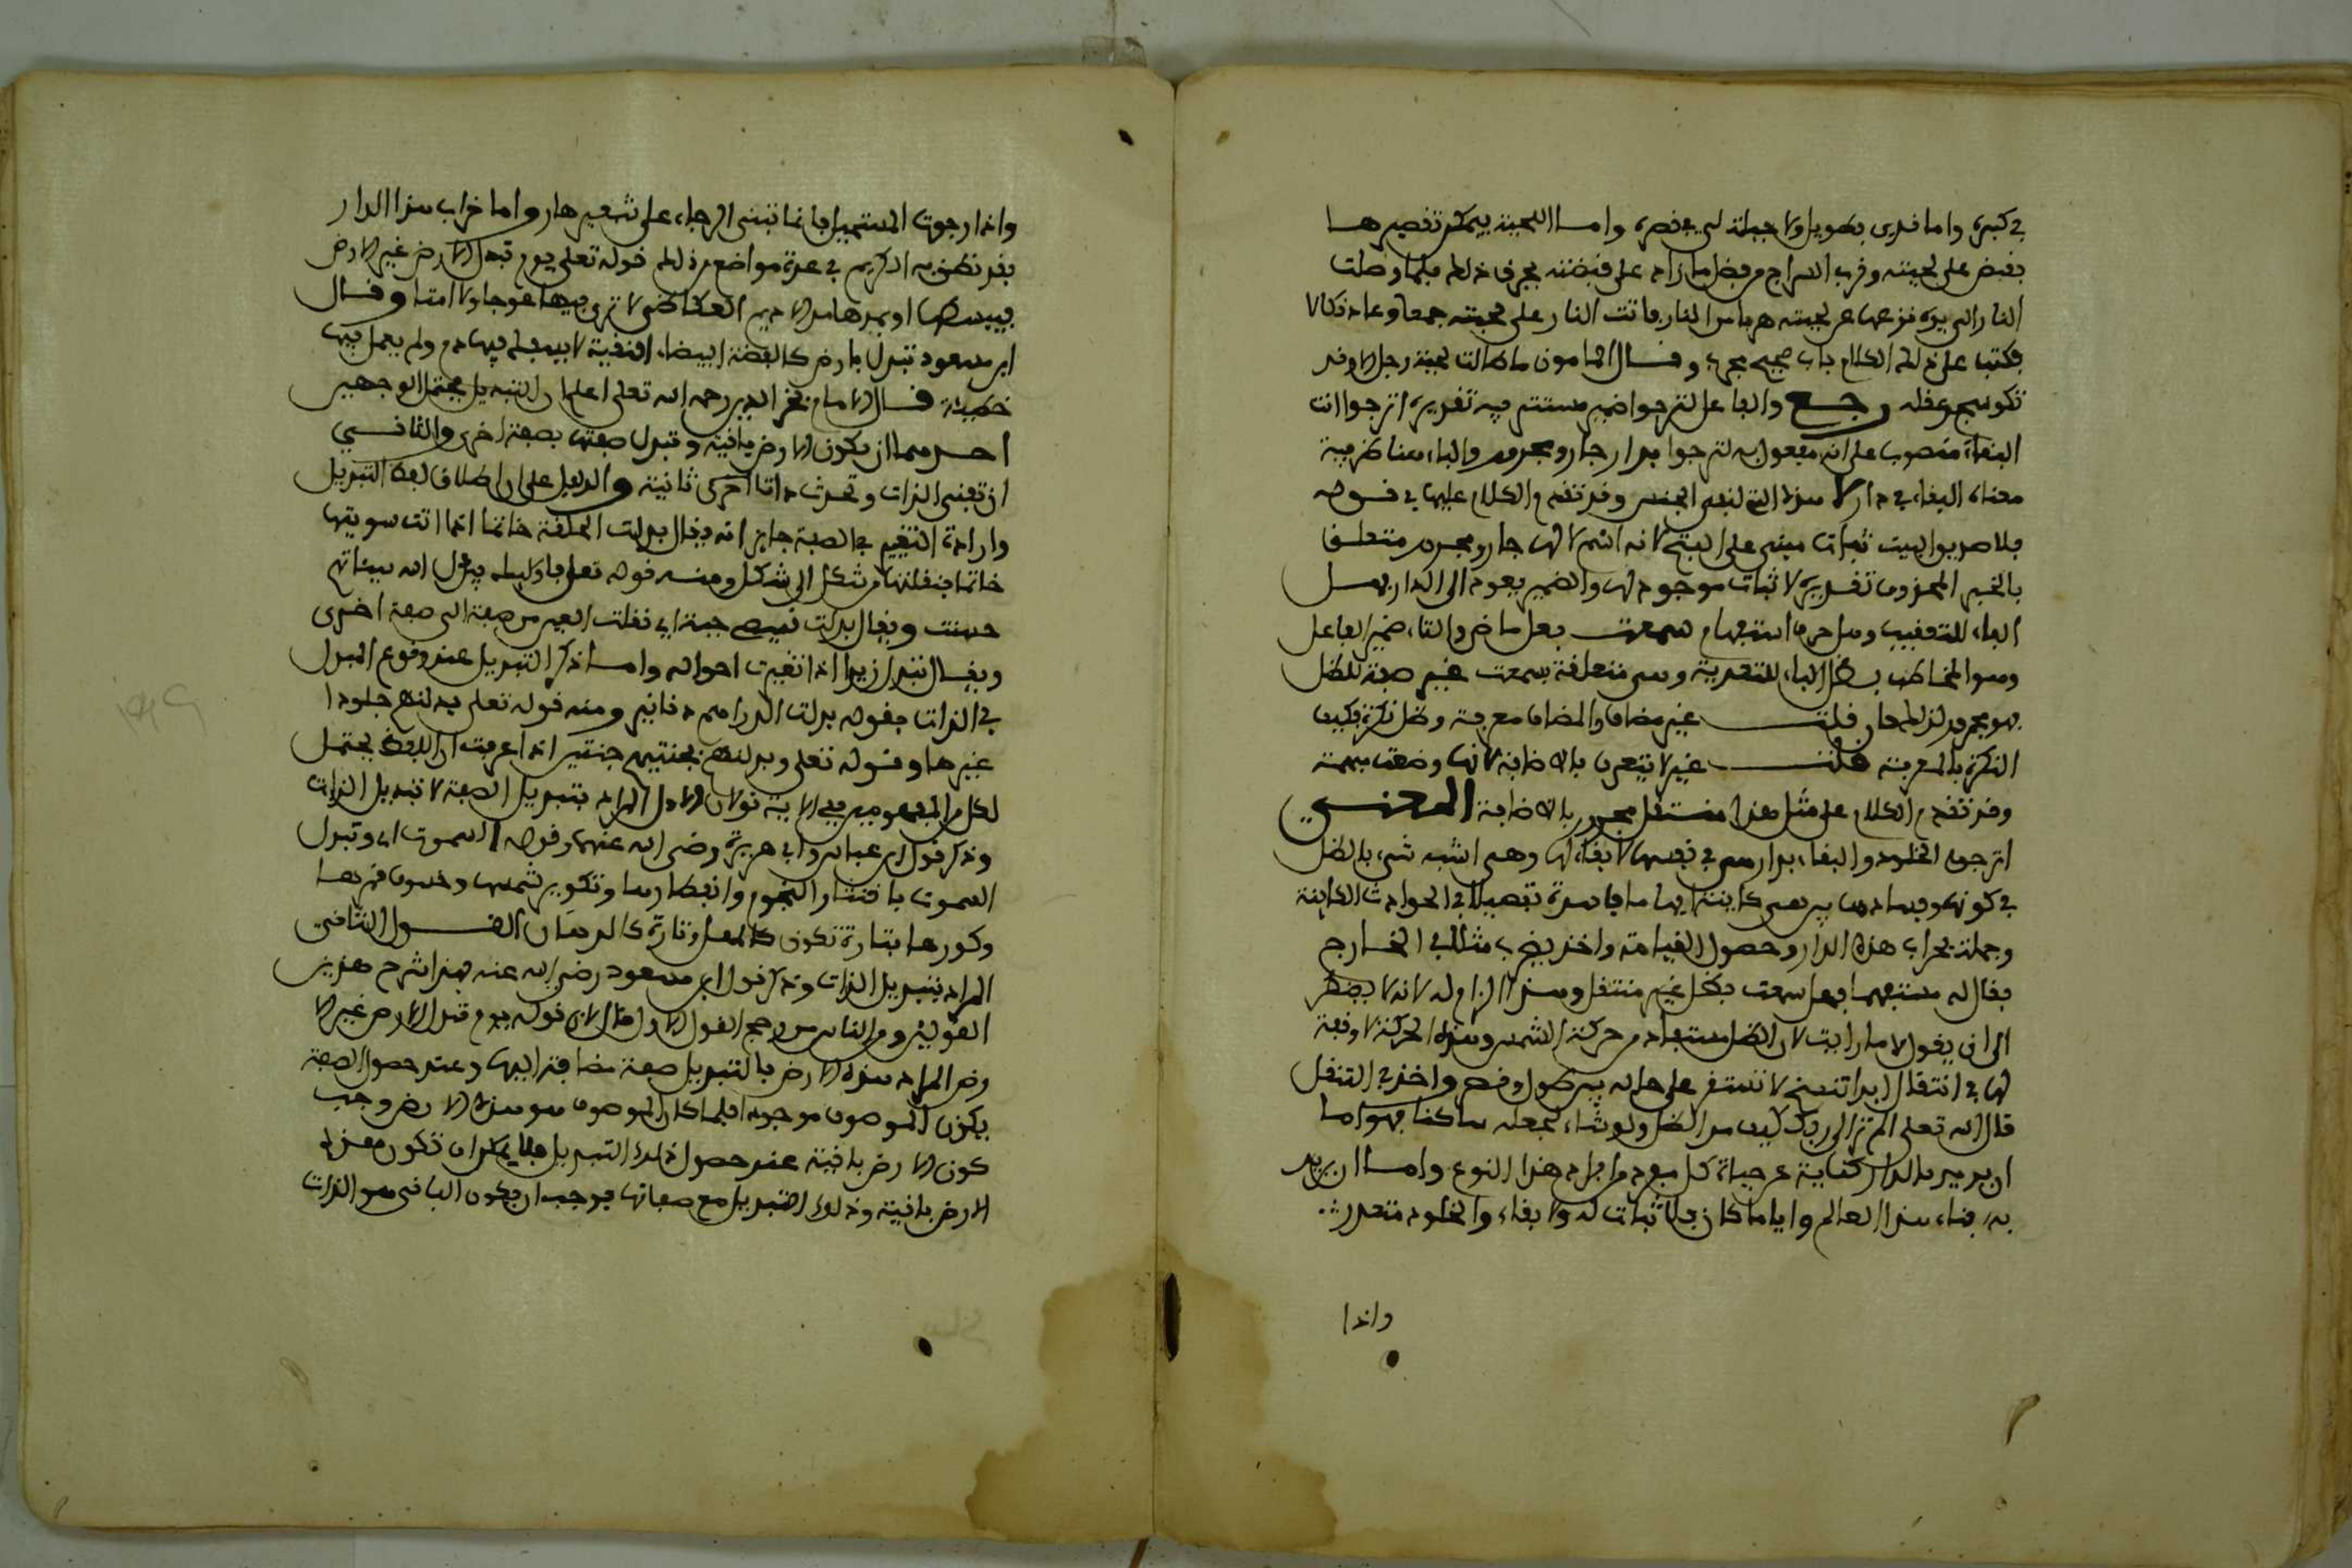 في كبره واما فدى بطويل ولا حيلة لي في قصره واما اللحية يمكن تقصيرها
فقبض على لحيته وقرب السراج من فضل ما زاد على قبضته يحرق ذلك فلما وصلت
النار الى يده نزعها عن لحيته هربا من النار فاتت النار على لحيته جمعا وعاد نكالا
فكتب على ذلك الكلام باب صحيح مجرب وقال المامون ما طالت لحية رجل الا وقد
تكوسج عقله رجع والفاعل لترجوا ضمير مستتر فيه تقديره اترجوا انت
البقاء منصوب على انه مفعول به لترجوا بدار جار ومجرور والباء هنا ظرفية
معناه البقاء في دار لا هذه التي لنفي الجنس وقد تقدم الكلام عليها في قوله
فلا صديق اليه ثبات مبني على الفتح لانه اسم لا لها جار ومجرور متعلق
بالخبر المحذوف تقديره لا ثبات موجود لها والضمير يعود الى الدار فهل
الفاء للتعقيب وهل حرف استفهام سمعت فعل ماض والتاء ضمير الفاعل
وهو المخاطب بظل الباء للتعدية وهي متعلقة بسمعت غير صفة للظل
فهو مجرور لذلك فان قلت غير مضاف والمضاف معرفة وظل نكرة فكيف
النكرة بالمعرفة قلت غير لا يتعرف بالاضافة لانها وضعت مبهمة
وقد تقدم الكلام على مثل هذا منتقل مجرور بالاضافة المعنى
اترجو الخلود والبقاء بدار هي في نفسها لا بقاء لها وهي اشبه شيء بالظل
في كونها وفسادها فهي كائنة فيها ما فاسدة تفصيلا في الحوادث الكاينة
وجملة بخراب هذه الدار وحصول القيامة واخذ يضرب مثالا في الخارج
فقال له مستفهما فهل سمعت بظل غير منتقل وهذا الزام له لانه لا يضطر
الى ان يقول لا ما رايت لان الظل مستفاد من حركة الشمس وهذه الحركة لا وقفة
لها في انتقال ابدا تنسخ لا تستقر على حالة بين طول وقصر واخذ في التنقل
قال الله تعلى الم تر الى ربك كيف مد الظل ولو شاء لجعله ساكنا فهو اما
ان يريد بالدار كناية عن حياة كل مفرد من افراد هذا النوع واما ان يريد
به فناء هذا العالم وايا ما كان فلا ثبات له ولا بقاء والخلود متعذر
واذا
واذا رجوت المستحيل فانما تبنى الرجاء على شفير هار واما خراب هذا الدار
فقد نطق به الكريم في عدة مواضع من ذلك قوله تعلى يوم تبدل الارض غير الارض
فيبسطها او يمدها مد الاديم العكاظي لا ترى فيها عوجا ولا امتا وقال
ابن مسعود تبدل بارض كالفضة البيضاء النقية لا يسفك فيها دم ولم يعمل فيها
خطيئة قال الامام فخر الدين رحمه الله تعلى اعلم ان التبديل يحتمل الوجهين
احدهما ان يكون الارض باقية وتبدل صفتها بصفة اخرى والثاني
ان تفنى الذات وتحدث ذاتا اخرى ثانية والدليل على ان اطلاق لفظ التبديل
وارادة التغيير في الصفة جايز انه يقال بدلت الحلقة خاتما اذا انت سويتها
خاتما فنقلتها من شكل الى شكل ومنه قوله تعلى فاوليك يبدل الله سيئاتهم
حسنت ويقال بدلت قميصه جبة اي نقلت العين من صفة الى صفة اخرى
ويقال تبدل زيد اذا تغيرت احواله واما ذكر التبديل عند وقوع المبدل
في الذات فقوله بدلت الدراهم دنانير ومنه قوله تعلى بدلنهم جلودا
غيرها وقوله تعلى وبدلنهم بجنتيهم جنتين اذا عرفت ان اللفظ يحتمل
لكل من المفهومين ففي الاية قولان الاول المراد بتبديل الصفة لا تبديل الذات
وذكر قول ابن عباس وابي هريرة رضي الله عنهم وقوله السموت اي وتبدل
السموت بانتثار النجوم وانفطارها وتكوير شمسها وخسوف قمرها
وكورها فتارة تكون كالمهل وتارة كالدهان القول الثاني
المراد بتبديل الذات وذكر قول ابن مسعود رضي الله عنه فهذا شرح هذين
القولين ومن الناس من رجح القول الاول قال لان قوله يوم تبدل الارض غير الا
رض المراد هذه الارض بالتبديل صفة مضافة اليها وعند حصول الصفة
يكون الموصوف موجودا فلما كان الموصوف هو هذه الارض وجب
كون الارض باقية عند حصول ذلك التبديل فلا يمكن ان تكون هذه
الارض باقية وذلك التبديل مع صفاتها فوجب ان يكون الباقي هو الذات